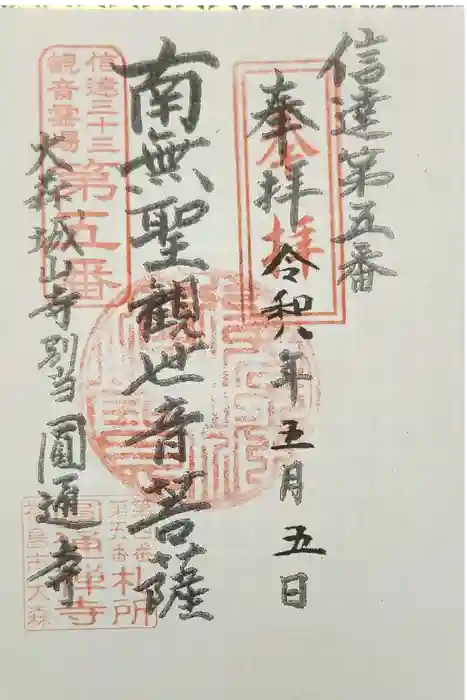 信達第五番
奉拝
奉拝
令和八年五月五日
南無聖觀世音菩薩
信達三十三
観音霊場
第五番
大森城山寺別当圓通寺
第五番
札所
圓通禅寺
福島市大森